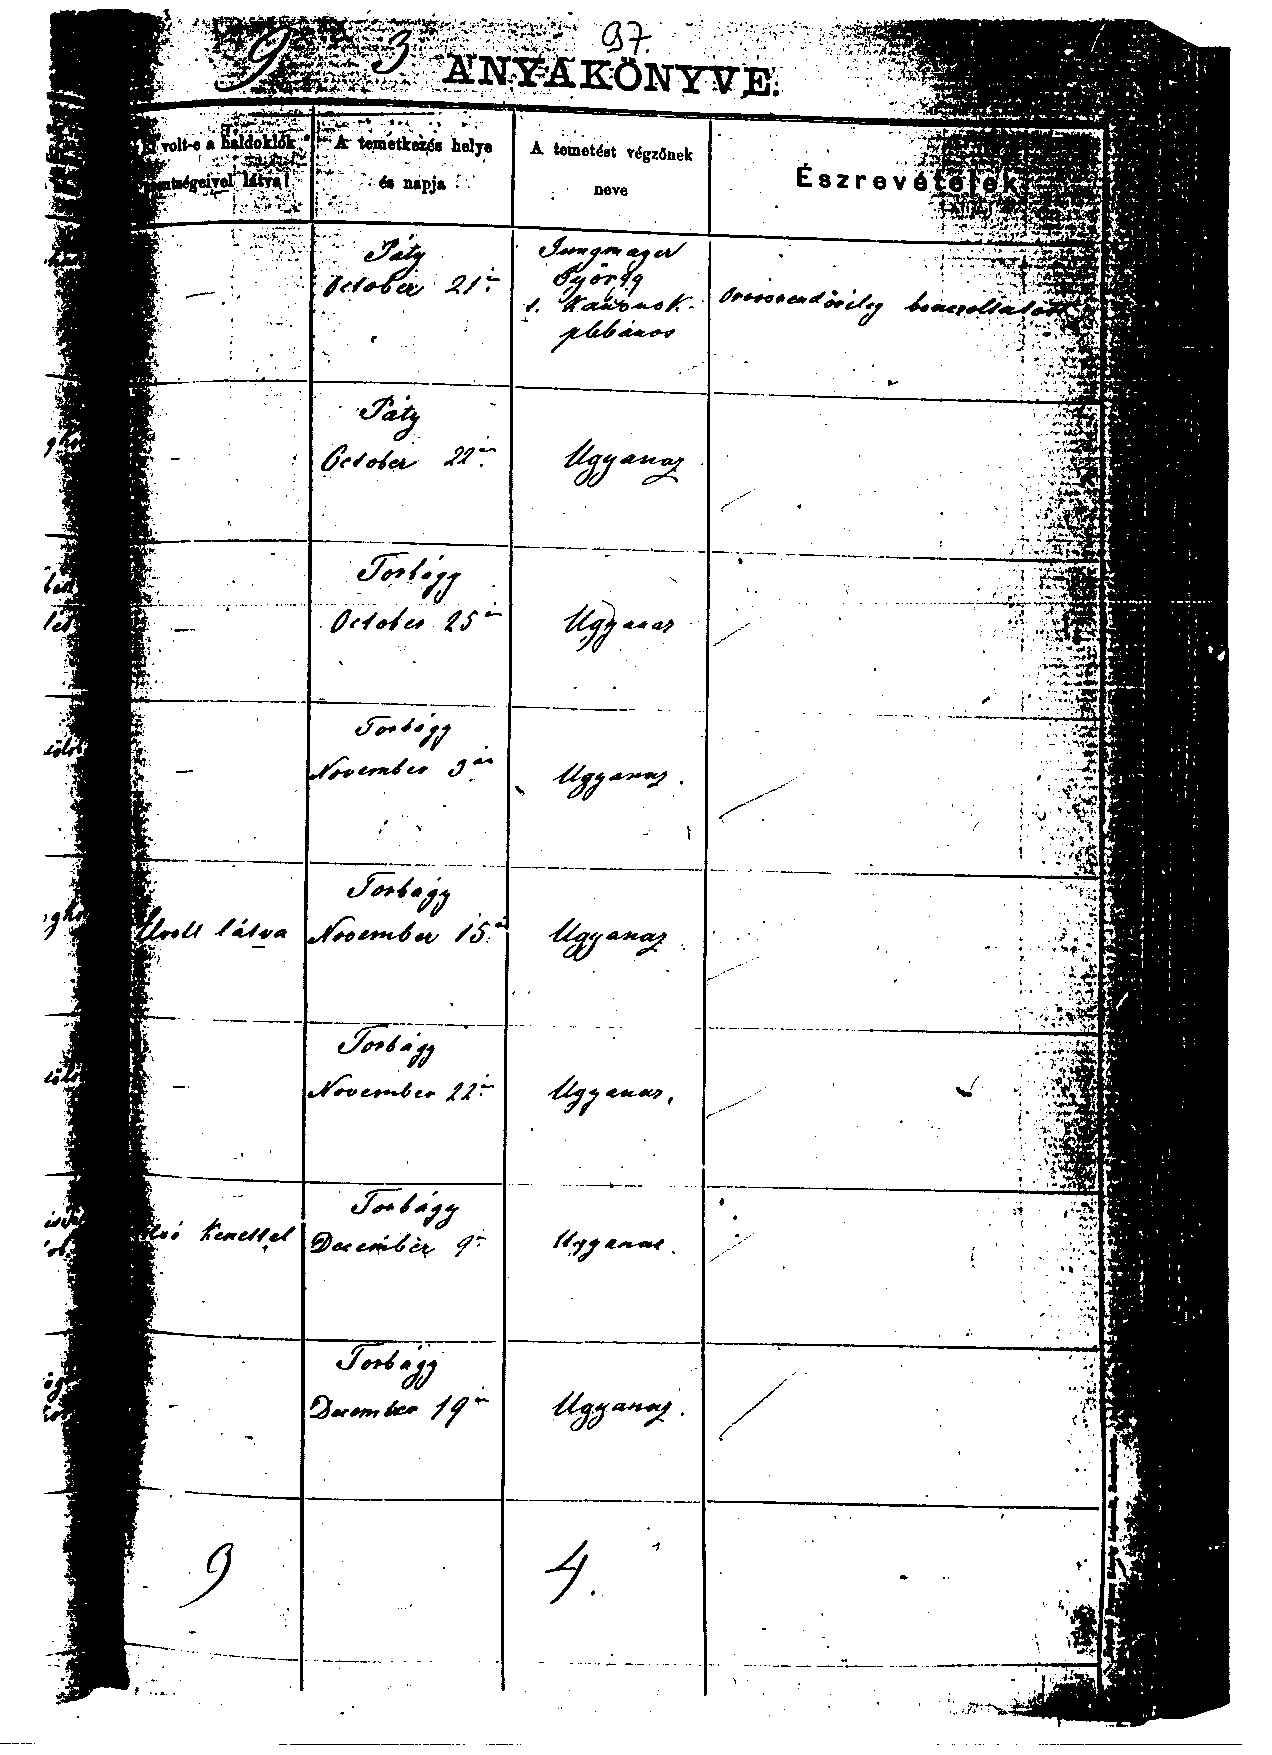 97.
9 3
ANYAKÖNYVE.
volt-e a haldoklók
szentségeivel látva?
A temetkezés helye
és napja
A temetést végzőnek
neve
Észrevételek
—
Páty
October 21én
Jungmayer
György
s. Kaáznok
plébános
Orvosrendőrileg bonczoltatott
—
Páty
October 22én
Ugyanaz
—
Torbágy
October 25én
Ugyanaz
—
Torbágy
November 3án
Ugyanaz.
Elvolt látva
Torbágy
November 15én
Ugyanaz
—
Torbágy
November 22én
Ugyanaz.
Kenettel
Torbágy
December 9én
Ugyanaz.
-
Torbágy
December 19én
Ugyanaz.
9
4.